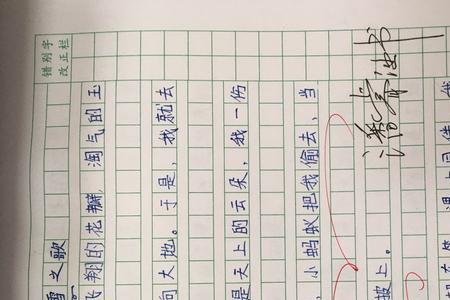 错别字
改正栏
雪之歌
飞翔的花瓣,淘气的玉
向大地。于是,我就去
是天上的云朵,我一伤
小蚂蚁把我偷去、当
披上。